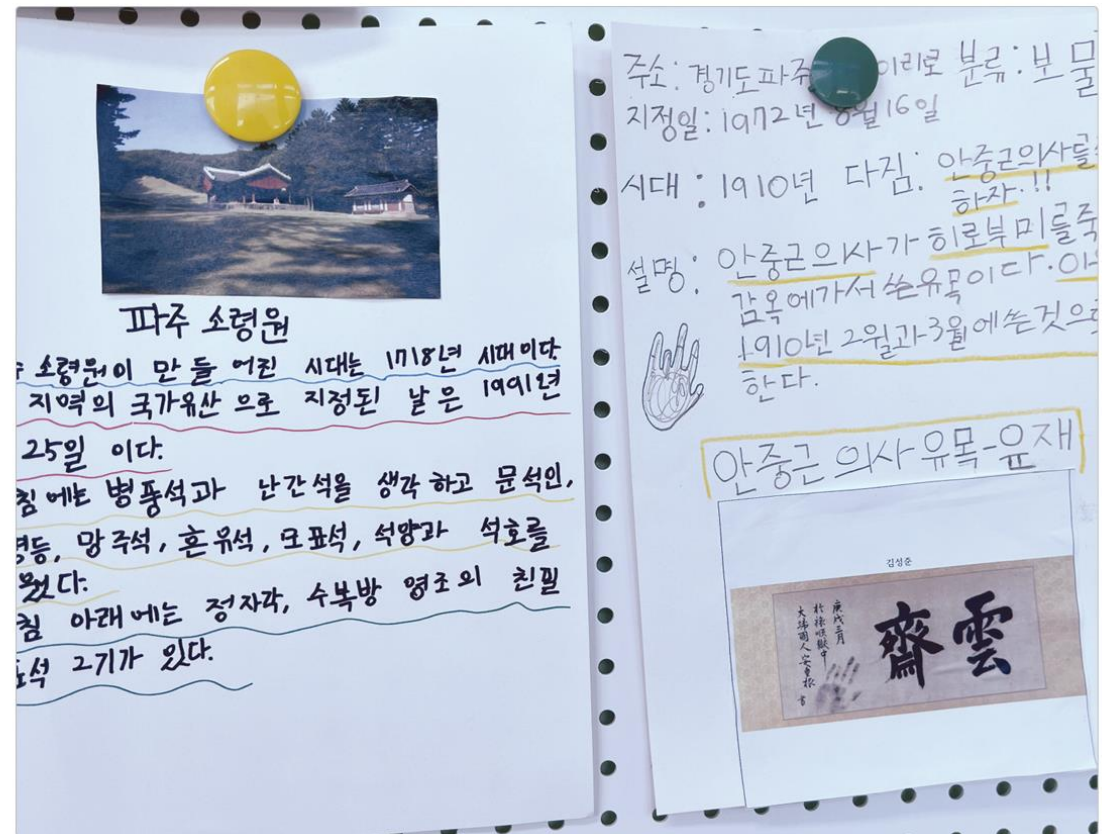 파주 소령원
소령원이 만들어진 시대는 1718년 시대이다.
지역의 국가유산으로 지정된 날은 1991년
25일 이다.
에는 병풍석과 난간석을 생각하고 문석인,
망주석, 혼유석, 표석, 석양과 석호를
아래에는 정자각, 수복방 영조의 친필
2기가 있다.
주소: 경기도파주 이리로 분류: 보물
지정일: 1972년 8월16일
시대: 1910년 다짐: 안중근의사를
하자!!
설명: 안중근의사가 히로부미를
감옥에가서 쓴유묵이다.
1910년 2월과3월에쓴것으로
한다.
안중근의사유묵-운재
김성준
雲齋
庚戌三月
於旅順獄中
大韓國人 安重根 書